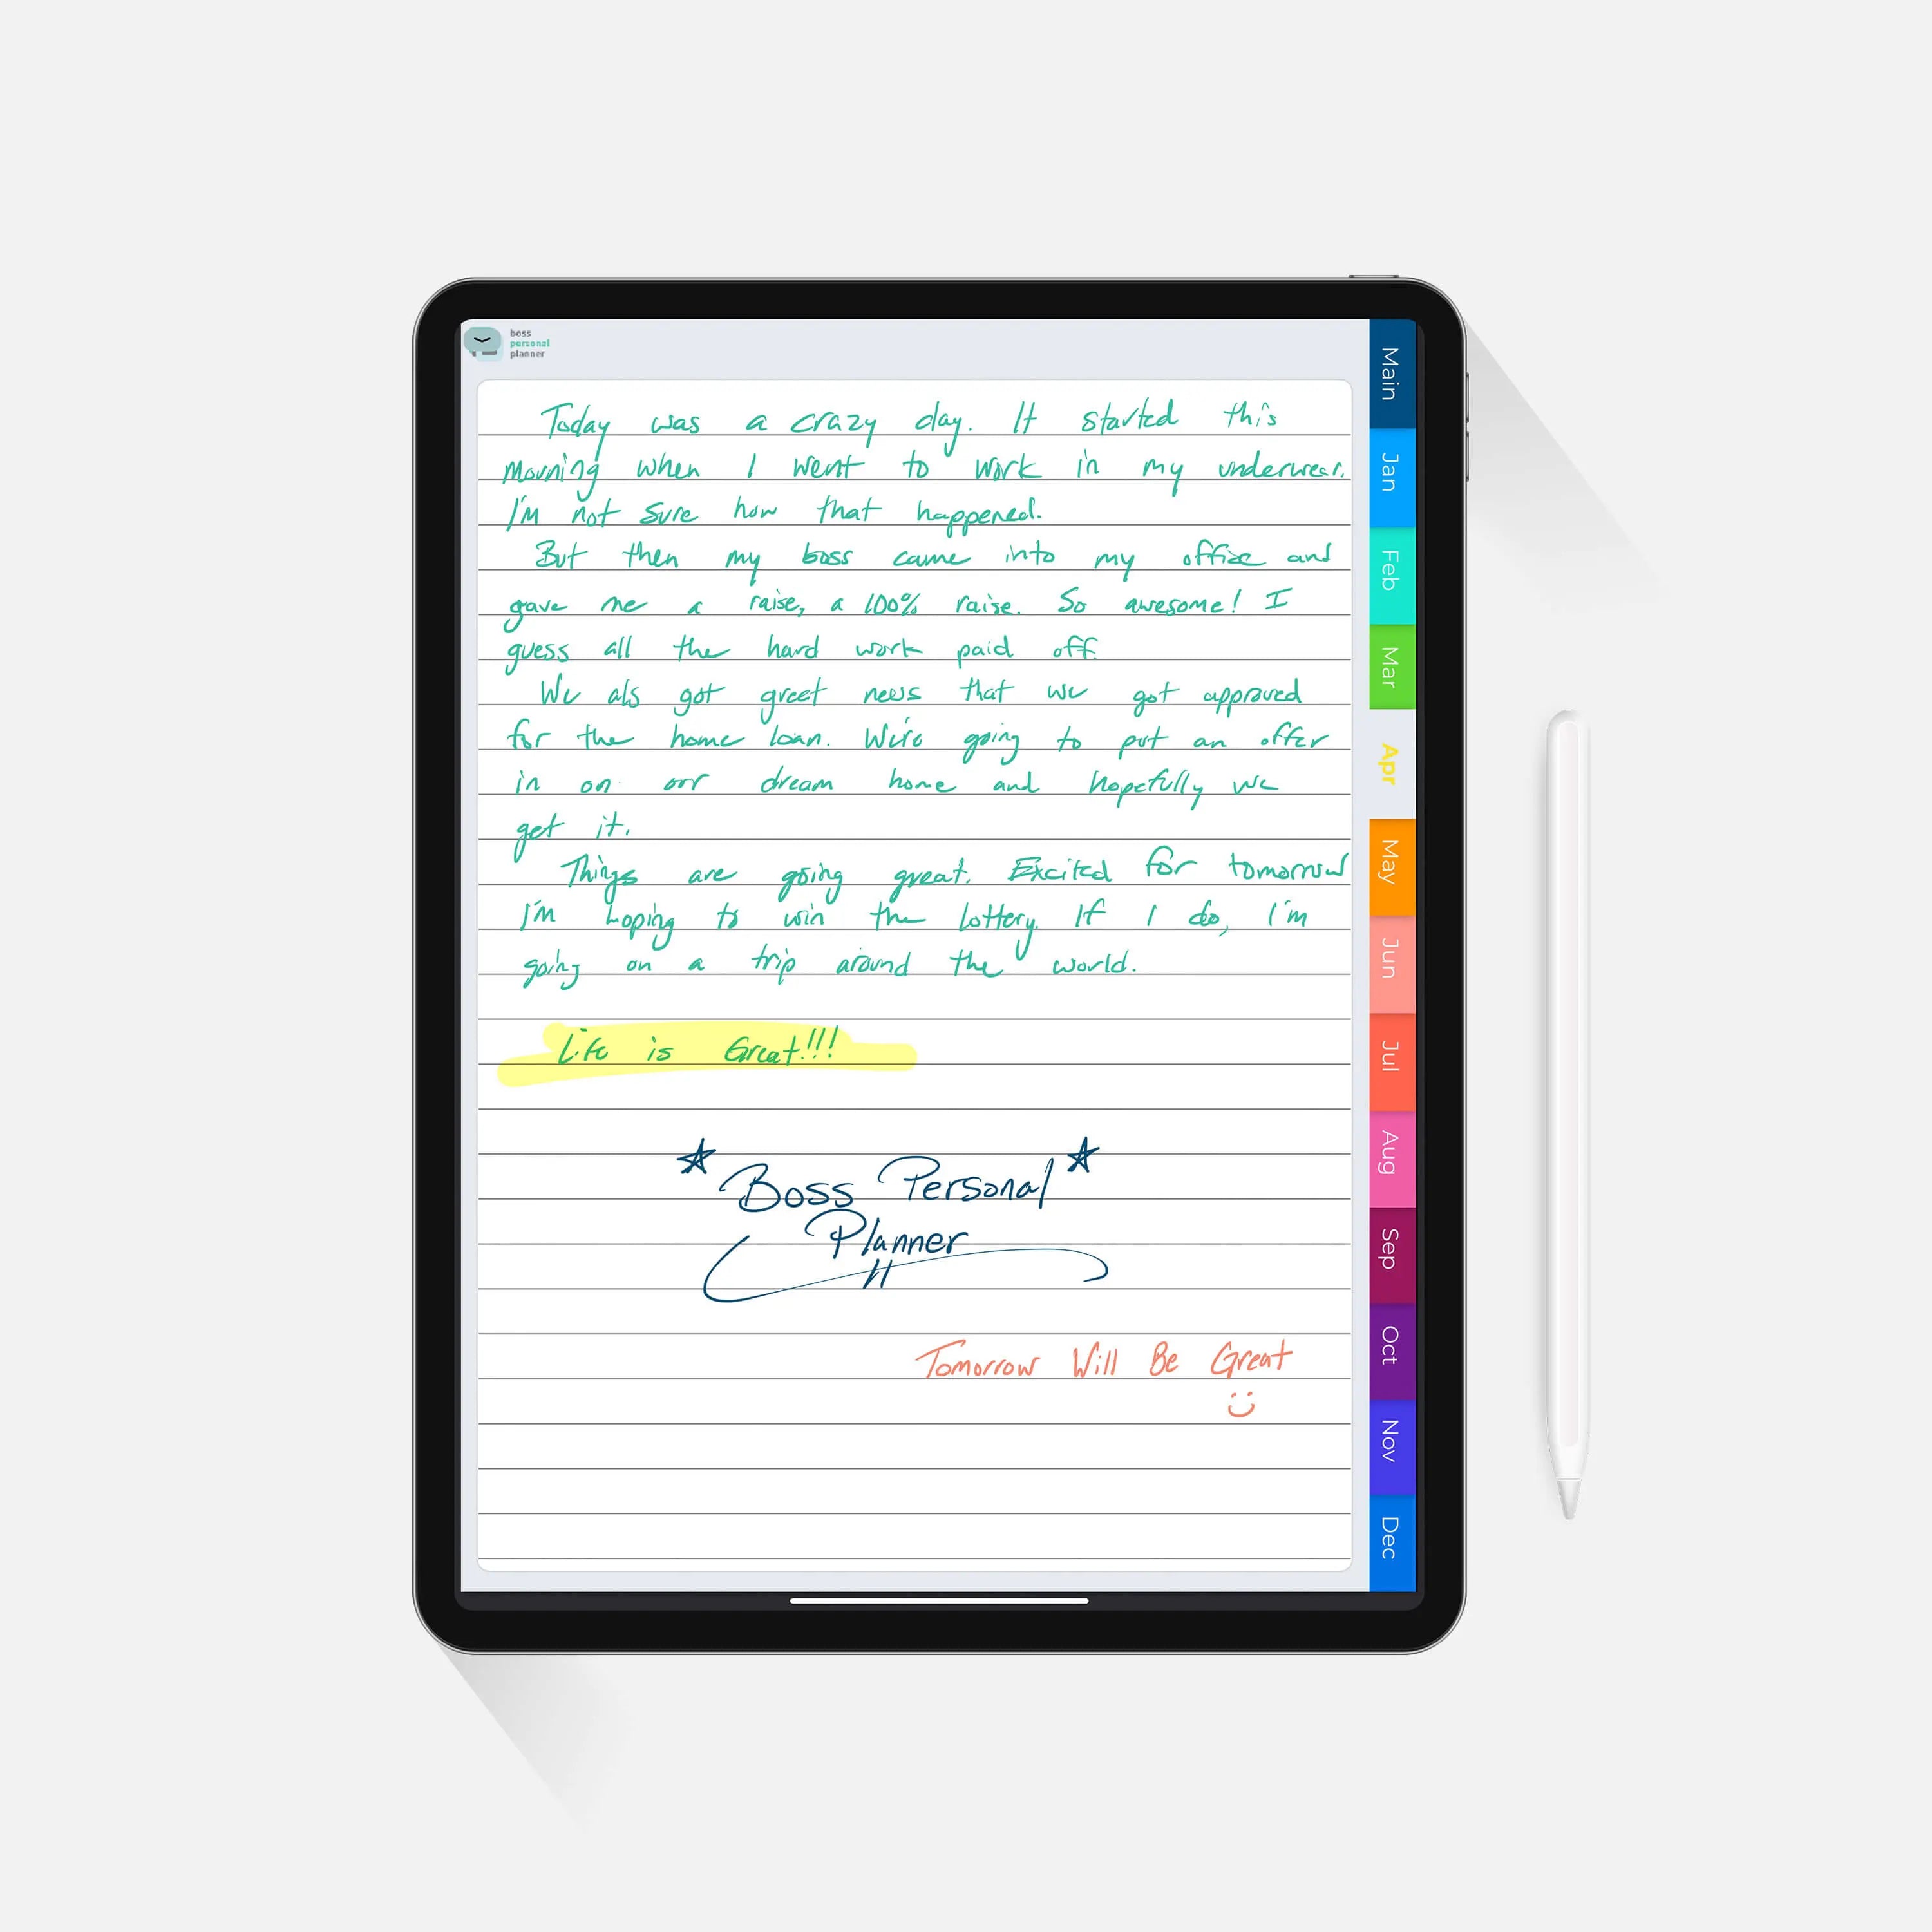 boss
personal
planner
Today was a crazy day. It started this
morning when I went to work in my underwear.
I'm not sure how that happened.
But then my boss came into my office and
gave me a raise, a 100% raise. So awesome! I
guess all the hard work paid off.
We als got great news that we got approved
for the home loan. We're going to put an offer
in on our dream home and hopefully we
get it.
Things are going great. Excited for tomorrow
I'm hoping to win the lottery. If I do, I'm
going on a trip around the world.
Life is Great!!!
Boss Personal
Planner
Tomorrow Will Be Great
Main
Jan
Feb
Mar
Apr
May
Jun
Jul
Aug
Sep
Oct
Nov
Dec